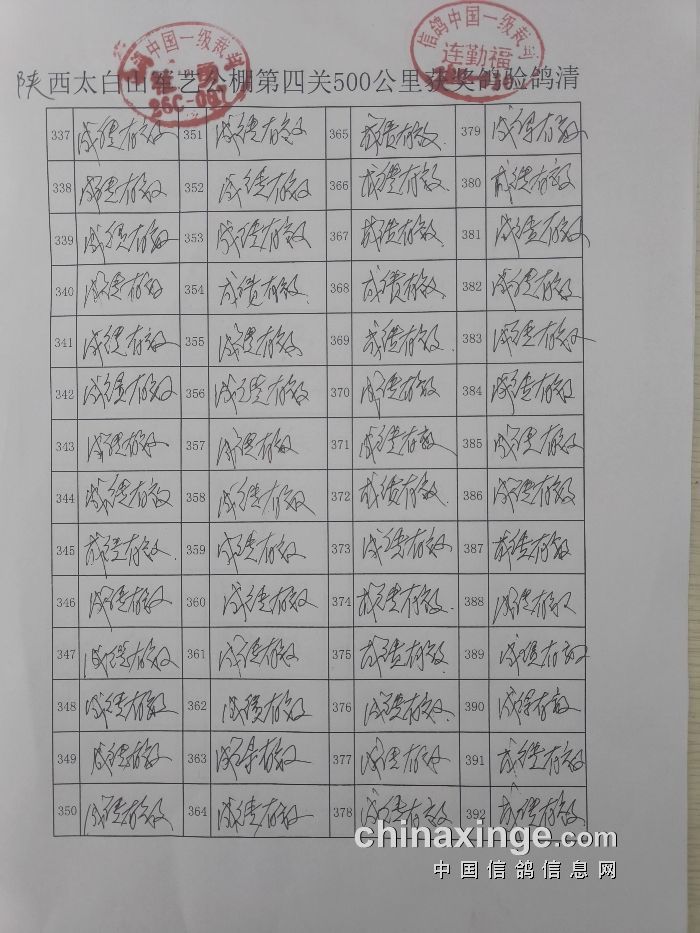 中国一级裁判
26C-007
信鸽中国一级裁判
连勤福
陕西太白山军艺公棚第四关500公里获奖鸽验鸽清
337 成绩有效 351 成绩有效 365 成绩有效 379 成绩有效
338 成绩有效 352 成绩有效 366 成绩有效 380 成绩有效
339 成绩有效 353 成绩有效 367 成绩有效 381 成绩有效
340 成绩有效 354 成绩有效 368 成绩有效 382 成绩有效
341 成绩有效 355 成绩有效 369 成绩有效 383 成绩有效
342 成绩有效 356 成绩有效 370 成绩有效 384 成绩有效
343 成绩有效 357 成绩有效 371 成绩有效 385 成绩有效
344 成绩有效 358 成绩有效 372 成绩有效 386 成绩有效
345 成绩有效 359 成绩有效 373 成绩有效 387 成绩有效
346 成绩有效 360 成绩有效 374 成绩有效 388 成绩有效
347 成绩有效 361 成绩有效 375 成绩有效 389 成绩有效
348 成绩有效 362 成绩有效 376 成绩有效 390 成绩有效
349 成绩有效 363 成绩有效 377 成绩有效 391 成绩有效
350 成绩有效 364 成绩有效 378 成绩有效 392 成绩有效
chinaxinge.com
中国信鸽信息网